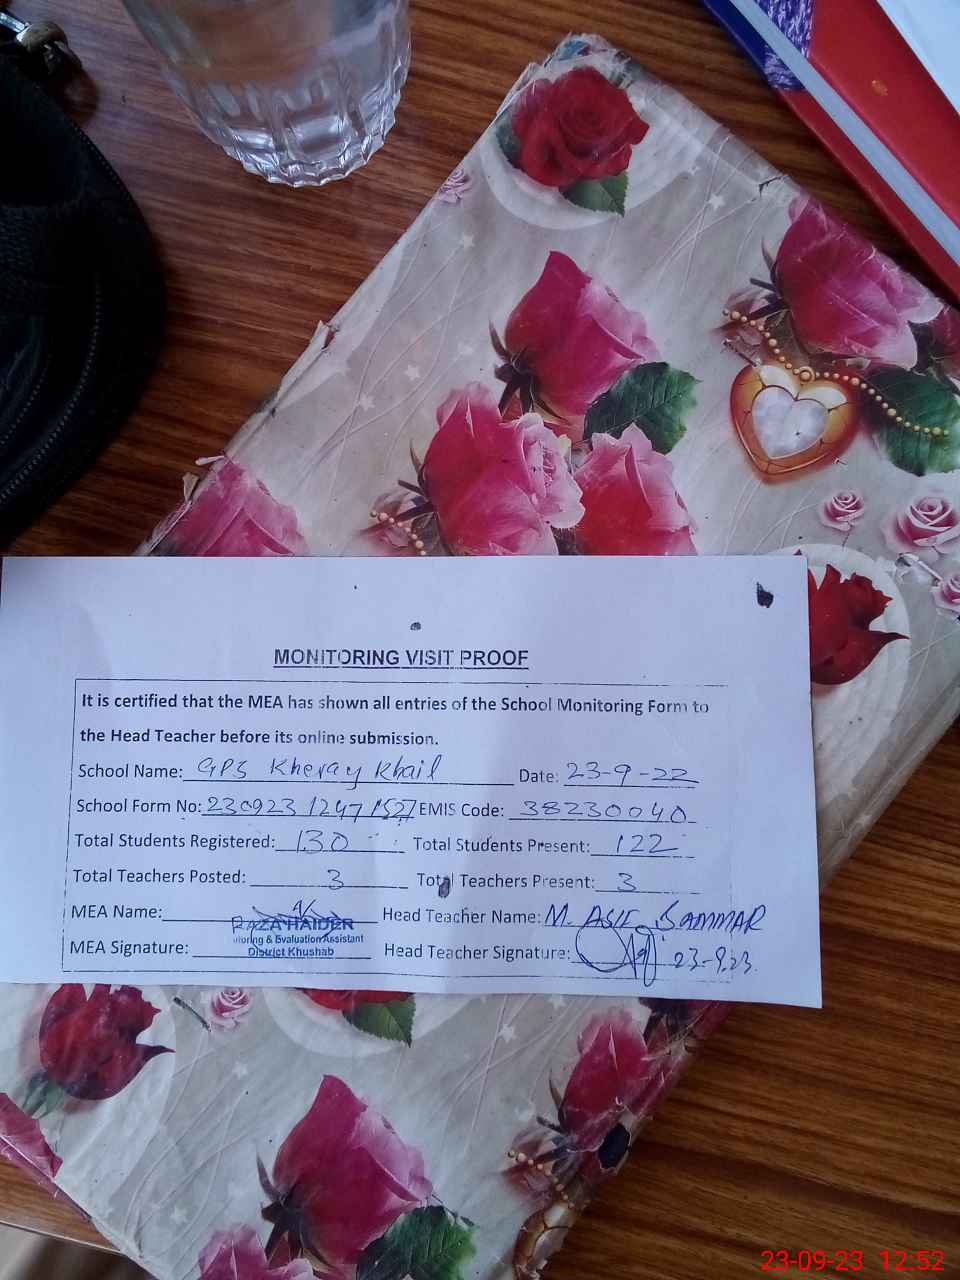 MONITORING VISIT PROOF
It is certified that the MEA has shown all entries of the School Monitoring Form to
the Head Teacher before its online submission.
School Name: GPS Kheray Khail Date: 23-9-22
School Form No: 230923 1247 1527 EMIS Code: 38230040
Total Students Registered: 130 Total Students Present: 122
Total Teachers Posted: 3 Total Teachers Present: 3
MEA Name: RAZA HAIDER Head Teacher Name: M. ASIF SAMMAR
itoring & Evaluation Assistant
MEA Signature: District Khushab Head Teacher Signature: 23-9.23.
23-09-23 12:52